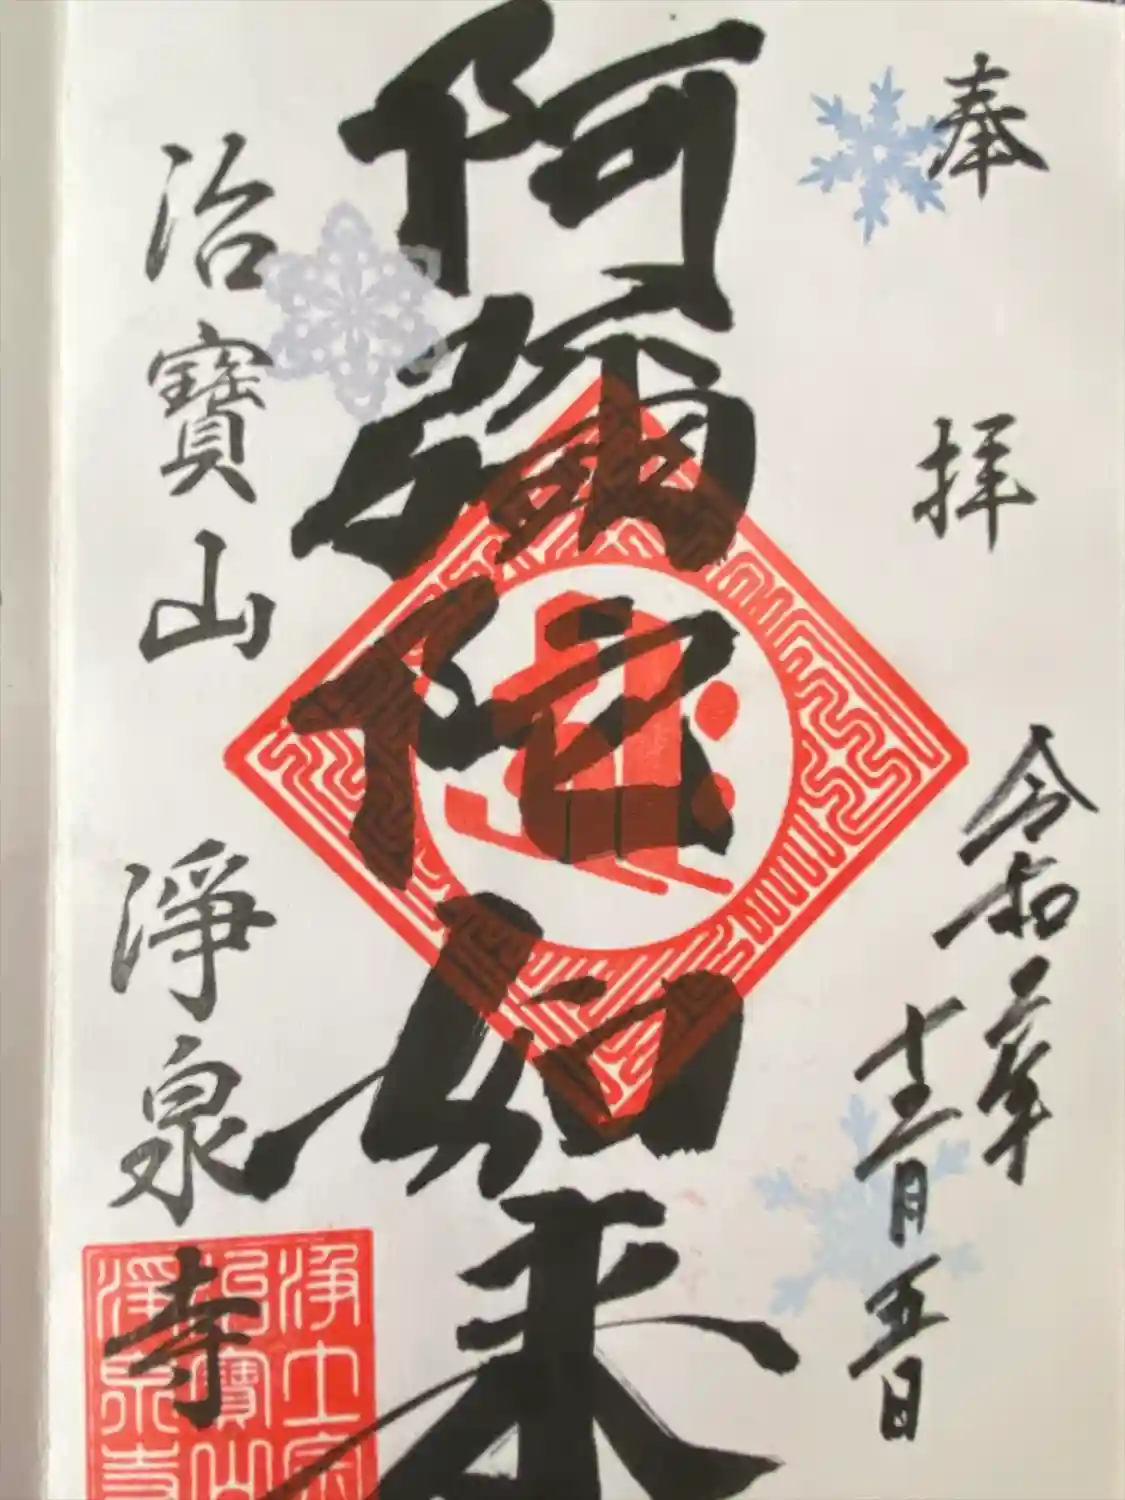 奉拝
令和二年
十二月五日
阿彌陀如来
治寳山 淨泉寺
浄土宗
治寳山
淨泉寺